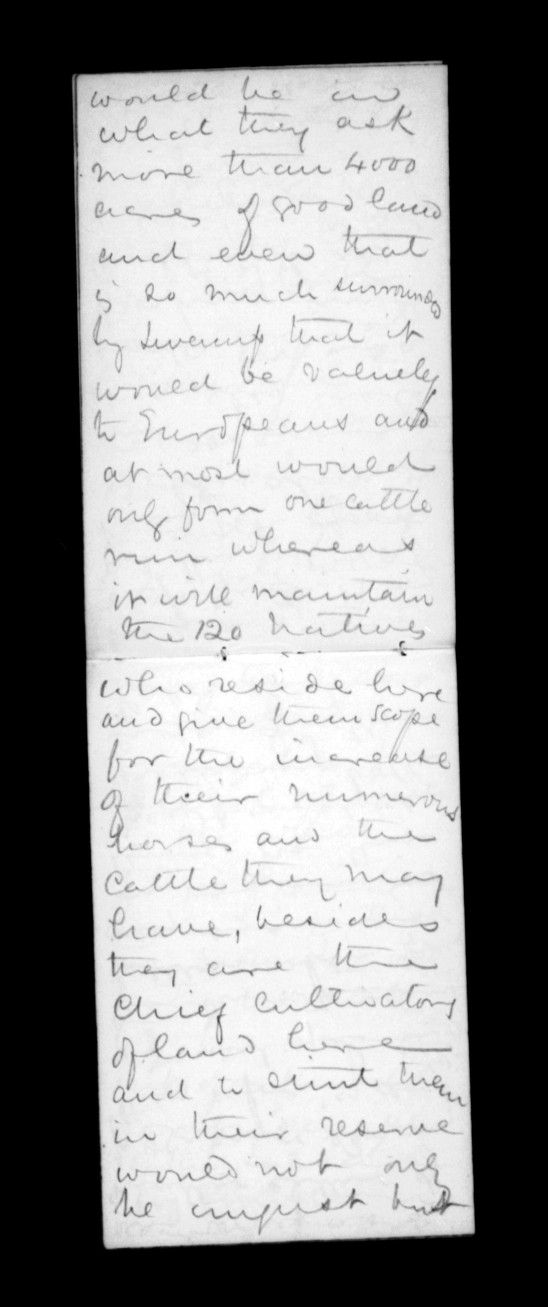 would be in
what they ask
more than 4000
acres of good land
and even that
is so much surrounded
by swamp that it
would be valuely
to Europeans and
at most would
only form one cattle
run whereas
it will maintain
the 120 Natives
who reside here
and give them scope
for the increase
of their numerous
horses and the
cattle they may
have, besides
they are the
chief cultivators
of land here
and to stint them
in their reserve
would not only
be unjust but